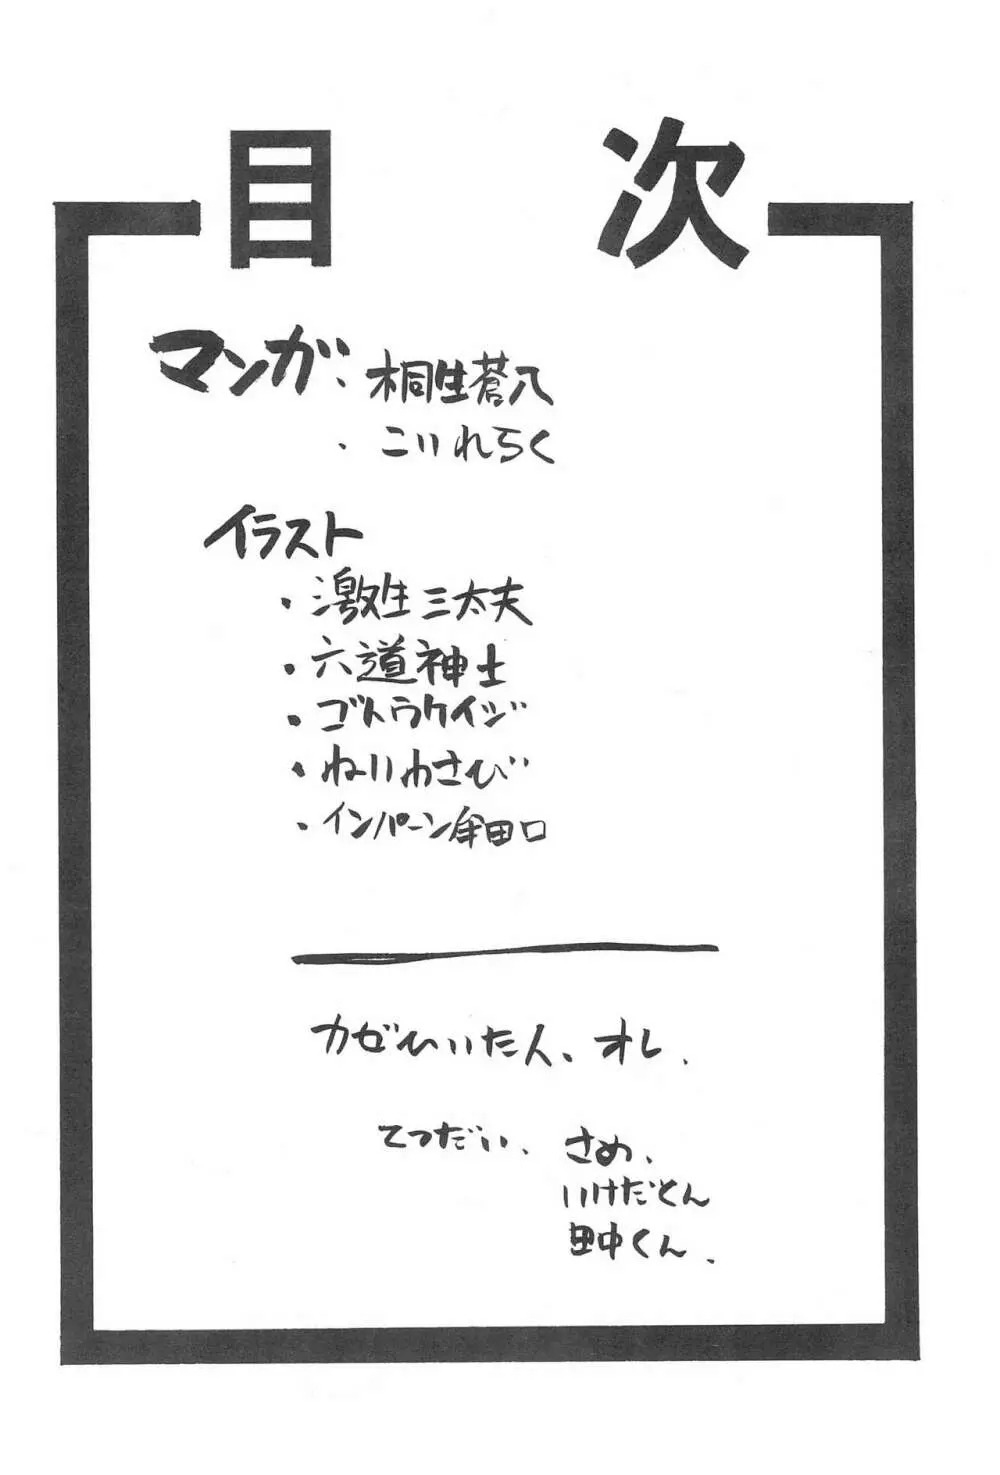 目次
マンガ・桐生蒼八
・こいれらく
イラスト
・激生三太夫
・六道神士
・ゴトウケイジ
・ねりわさび
・インパーン牟田口
カゼひいた人、オレ.
てつだい、さめ、
いけだとん
田中くん、